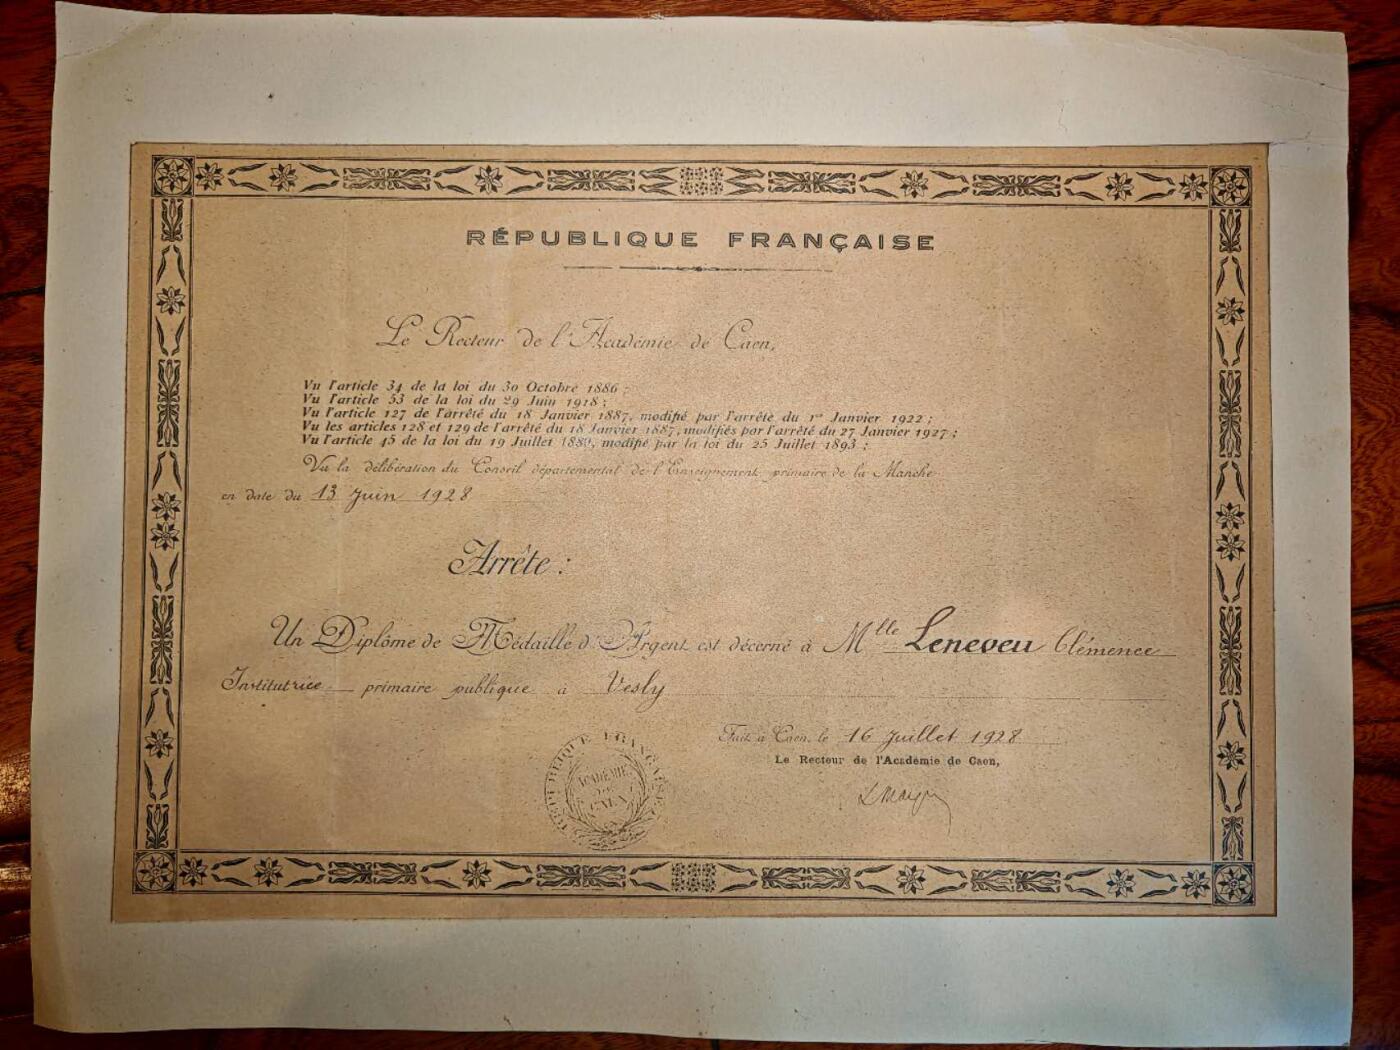 RÉPUBLIQUE FRANÇAISE
Le Recteur de l'Académie de Caen,
Vu l'article 34 de la loi du 30 Octobre 1886 ;
Vu l'article 53 de la loi du 29 Juin 1918 ;
Vu l'article 127 de l'arrêté du 18 Janvier 1887, modifié par l'arrêté du 1er Janvier 1922 ;
Vu les articles 128 et 129 de l'arrêté du 18 Janvier 1887, modifiés par l'arrêté du 27 Janvier 1927 ;
Vu l'article 45 de la loi du 19 Juillet 1889, modifié par la loi du 25 Juillet 1893 ;
Vu la délibération du Conseil départemental de l'Enseignement primaire de la Manche
en date du 13 Juin 1928
Arrête :
Un Diplôme de Médaille d'Argent est décerné à Mlle Leneveu Clémence
Institutrice primaire publique à Vesly
Fait à Caen, le 16 Juillet 1928
Le Recteur de l'Académie de Caen,
RÉPUBLIQUE FRANÇAISE
ACADÉMIE
DE
CAEN